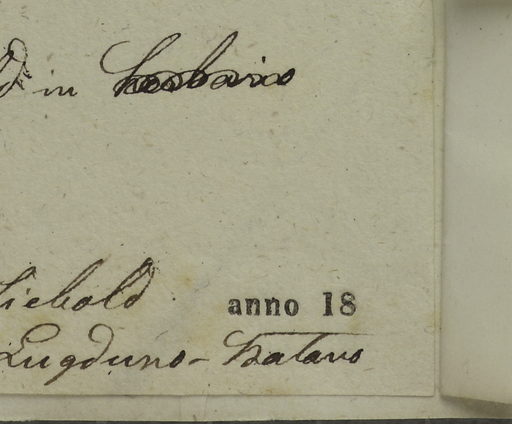 d in herbario
Siebold anno 18
Lugduno-Batavo